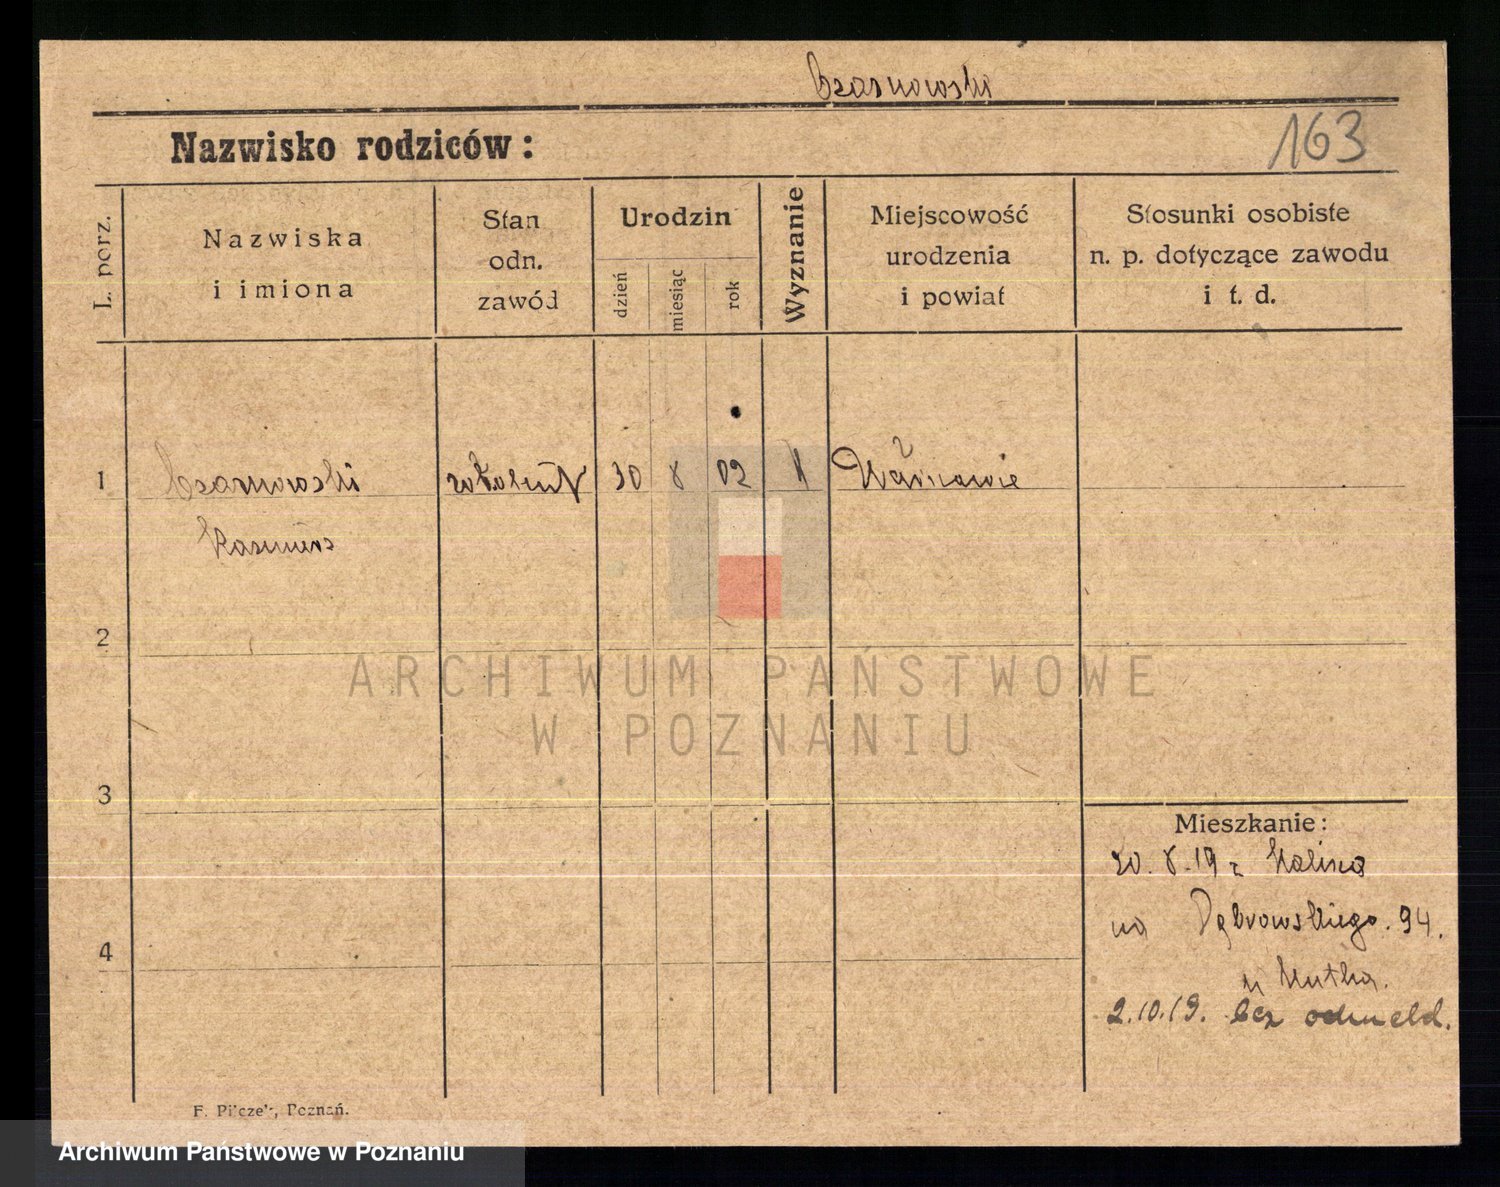 Czarnowski
Nazwisko rodziców:
163
L. porz.
Nazwiska
i imiona
Stan
odn.
zawód
Urodzin
dzień
miesiąc
rok
Wyznanie
Miejscowość
urodzenia
i powiat
Stosunki osobiste
n. p. dotyczące zawodu
i t. d.
1
Czarnowski
30 8 02
Kazimierz
2
ARCHIWUM PAŃSTWOWE
W POZNANIU
3
Mieszkanie:
20. 8. 19 z Kalisza
na Dąbrowskiego. 94.
u
4
2.10.19. bez odmeld.
F. Pilczek, Poznań.
Archiwum Państwowe w Poznaniu